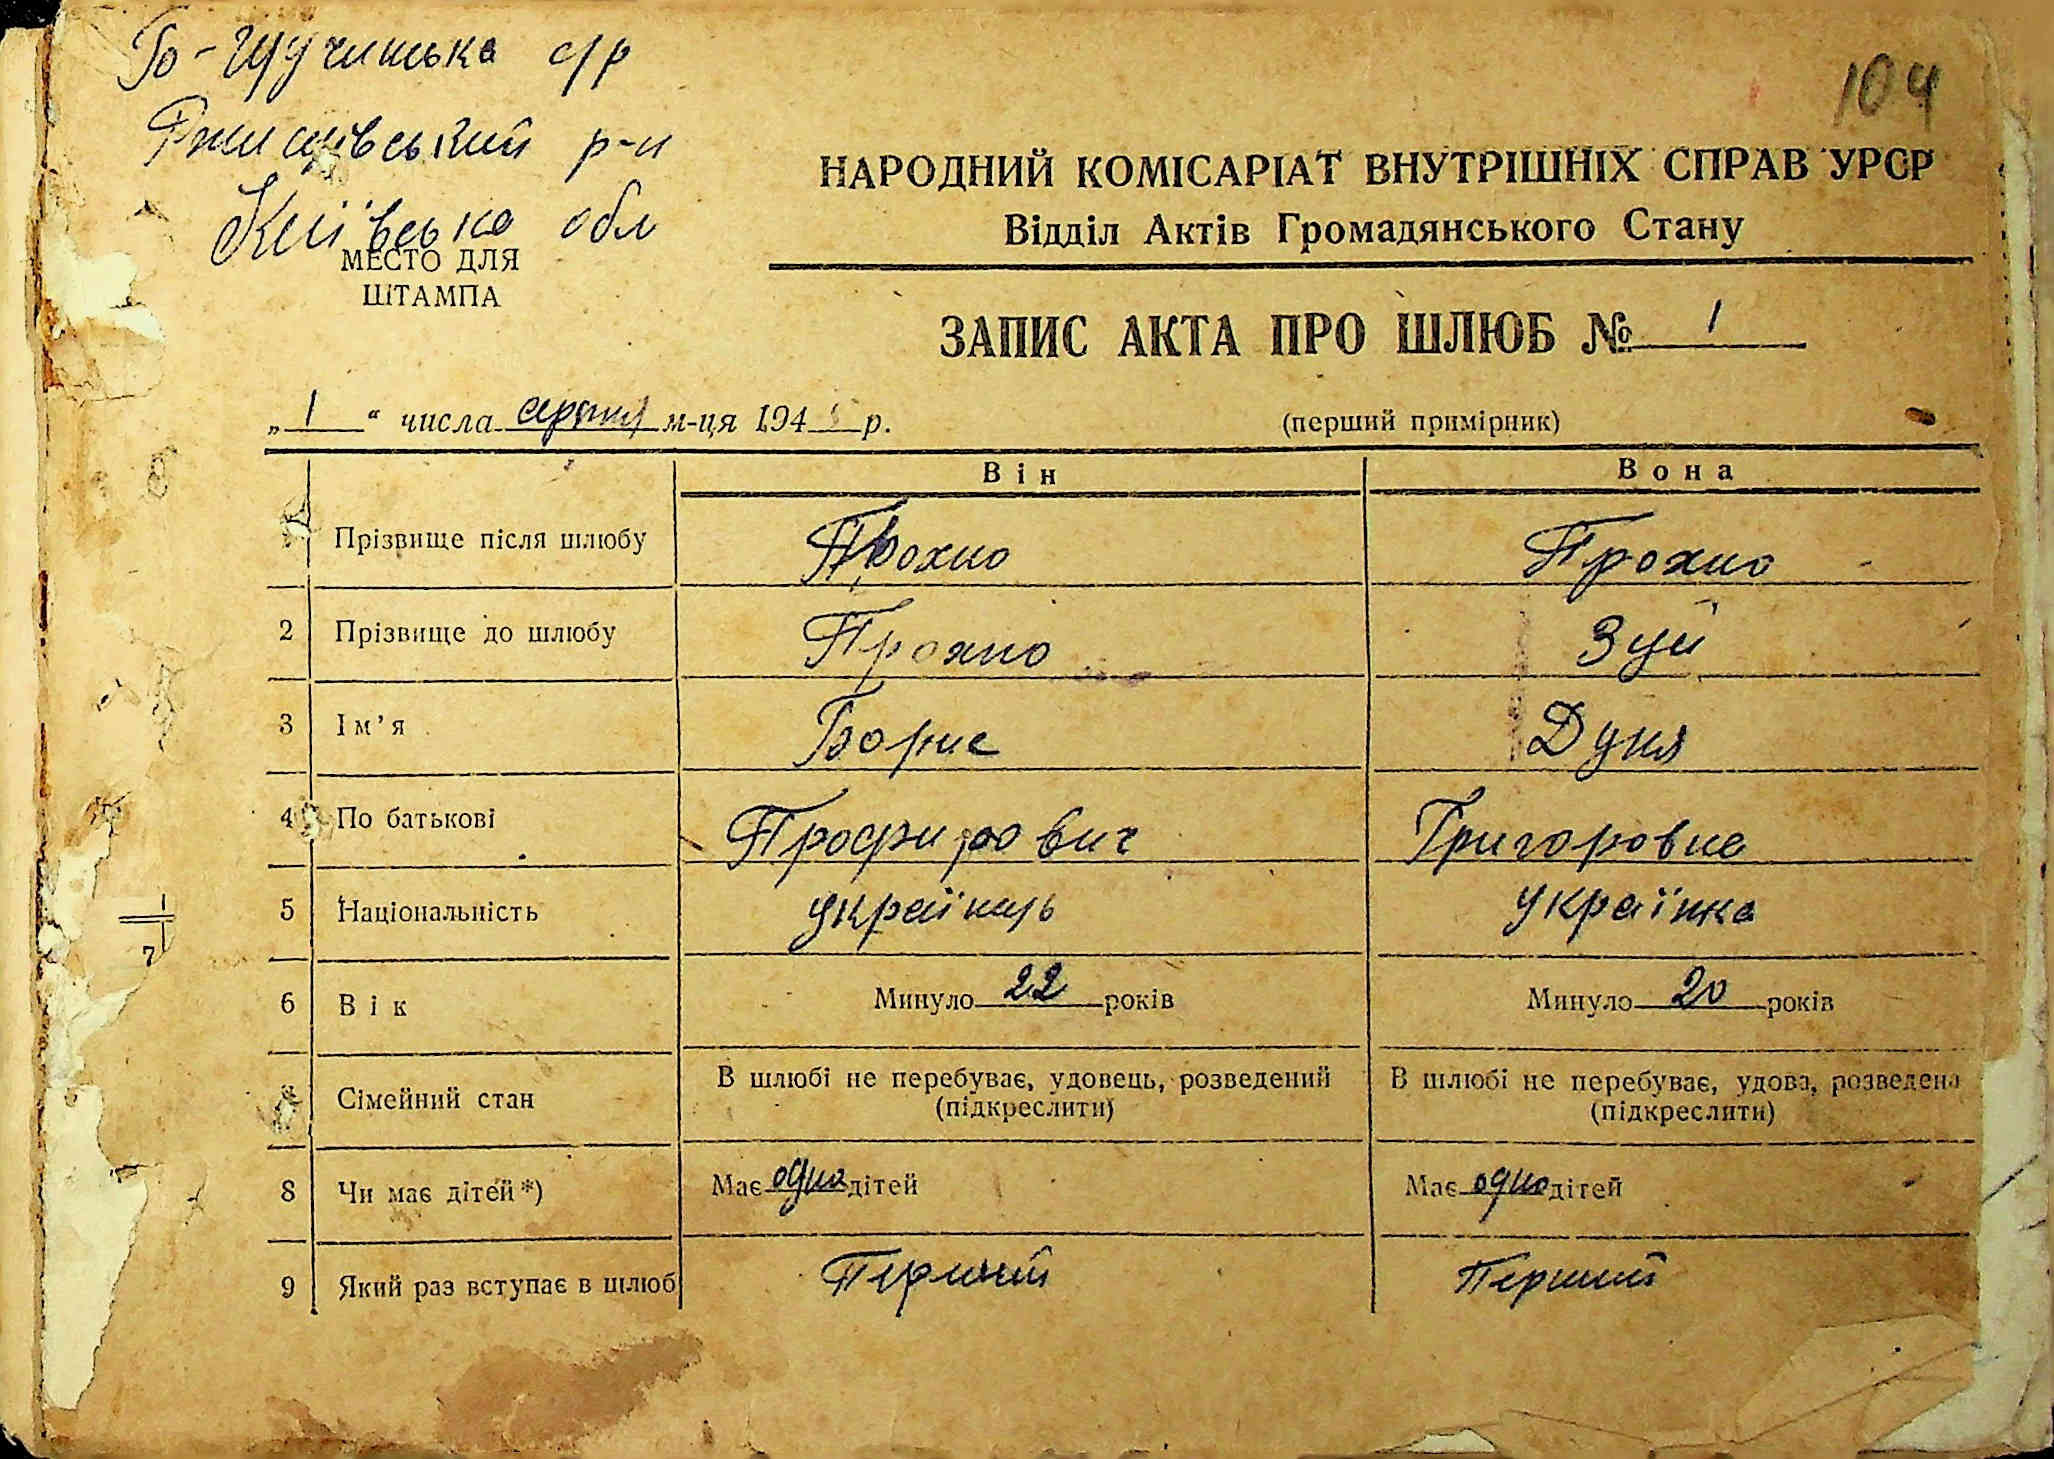 Го-Щучинська с/р
Ржищівський р-н
Київська обл
104
МЕСТО ДЛЯ
ШТАМПА
НАРОДНИЙ КОМІСАРІАТ ВНУТРІШНІХ СПРАВ УРСР
Відділ Актів Громадянського Стану
ЗАПИС АКТА ПРО ШЛЮБ № 1
„ 1 “ числа серпня м-ця 194 р.
(перший примірник)
Він Вона
Прізвище після шлюбу Прохно Прохно
2 Прізвище до шлюбу Прохно Зуй
3 Ім’я Борис Дуня
4 По батькові Профирович Григоровна
5 Національність українць українка
6 Вік Минуло 22 років Минуло 20 років
Сімейний стан В шлюбі не перебуває, удовець, розведений (підкреслити) В шлюбі не перебуває, удова, розведена (підкреслити)
8 Чи має дітей*) Має одно дітей Має одно дітей
9 Який раз вступає в шлюб Перший Перший